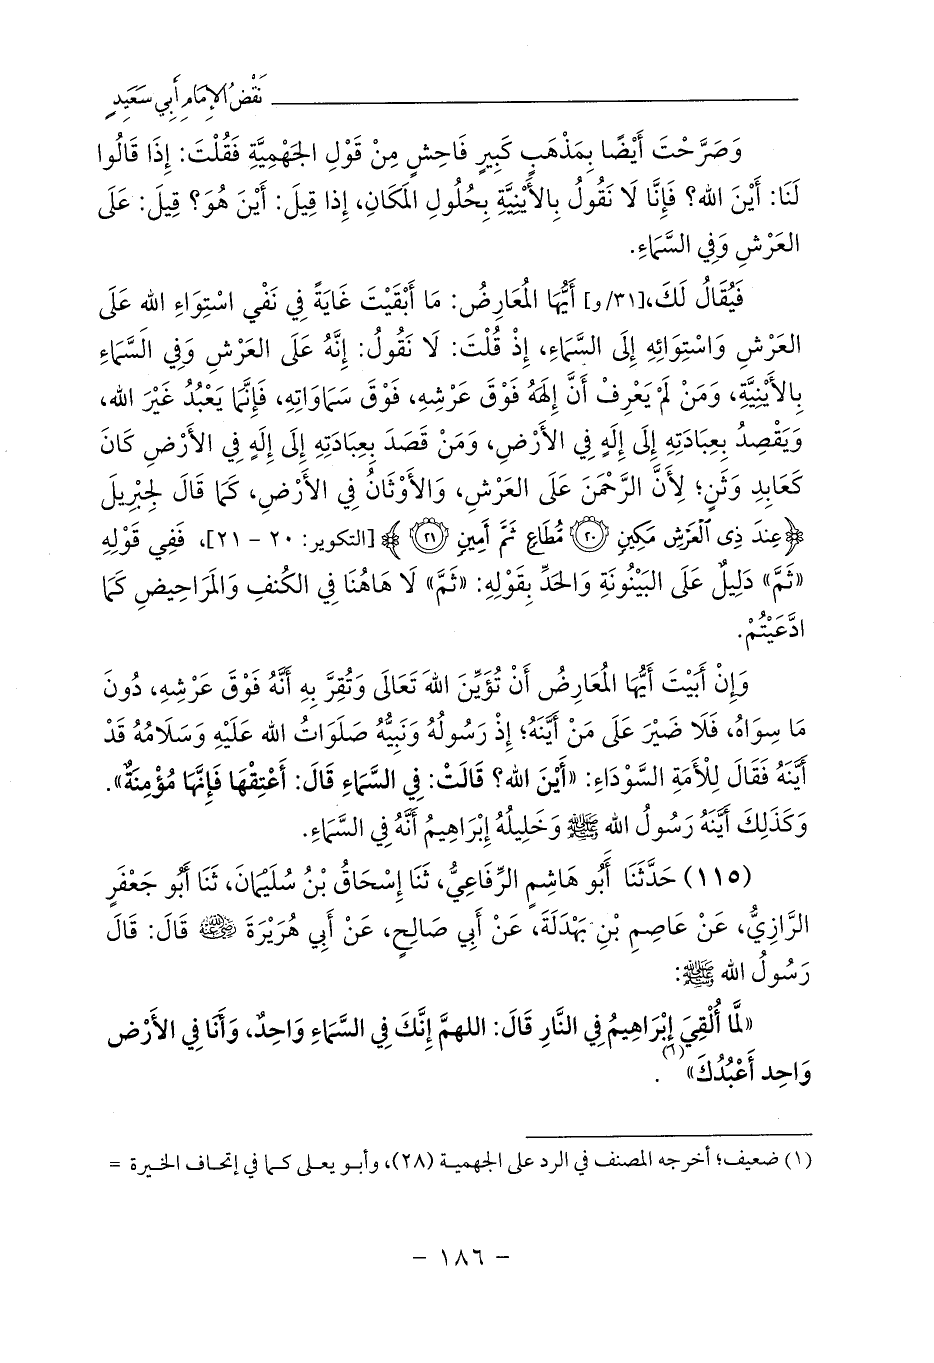 نَقْضُ الإِمَامِ أَبِي سَعِيدٍ
وَصَرَّحْتَ أَيْضًا بِمَذْهَبٍ كَبِيرٍ فَاحِشٍ مِنْ قَوْلِ الجَهْمِيَّةِ فَقُلْتَ: إِذَا قَالُوا
لَنَا: أَيْنَ الله؟ فَإِنَّا لَا نَقُولُ بِالأَيْنِيَّةِ بِحُلُولِ المَكَانِ، إِذَا قِيلَ: أَيْنَ هُوَ؟ قِيلَ: عَلَى
العَرْشِ وَفِي السَّمَاءِ.
فَيُقَالُ لَكَ،[٣١/و] أَيُّهَا المُعَارِضُ: مَا أَبْقَيْتَ غَايَةً فِي نَفْي اسْتِوَاءِ الله عَلَى
العَرْشِ وَاسْتِوَائِهِ إِلَى السَّمَاءِ، إِذْ قُلْتَ: لَا نَقُولُ: إِنَّهُ عَلَى العَرْشِ وَفِي السَّمَاءِ
بِالأَيْنِيَّةِ، وَمَنْ لَمْ يَعْرِفْ أَنَّ إِلَهَهُ فَوْقَ عَرْشِهِ، فَوْقَ سَمَاوَاتِهِ، فَإِنَّمَا يَعْبُدُ غَيْرَ الله،
وَيَقْصِدُ بِعِبَادَتِهِ إِلَى إِلَهٍ فِي الأَرْضِ، وَمَنْ قَصَدَ بِعِبَادَتِهِ إِلَى إِلَهٍ فِي الأَرْضِ كَانَ
كَعَابِدِ وَثَنٍ؛ لِأَنَّ الرَّحْمَنَ عَلَى العَرْشِ، وَالأَوْثَانُ فِي الأَرْضِ، كَمَا قَالَ لِجِبْرِيلَ
﴿عِندَ ذِى ٱلْعَرْشِ مَكِينٍ ۝٢٠ مُّطَاعٍ ثَمَّ أَمِينٍ ۝٢١﴾ [التكوير: ٢٠ - ٢١]، فَفِي قَوْلِهِ
«ثَمَّ» دَلِيلٌ عَلَى البَيْنُونَةِ وَالحَدِّ بِقَوْلِهِ: «ثَمَّ» لَا هَاهُنَا فِي الكُنفِ وَالمَرَاحِيضِ كَمَا
ادَّعَيْتُمْ.
وَإِنْ أَبَيْتَ أَيُّهَا المُعَارِضُ أَنْ تُؤَيِّنَ اللهَ تَعَالَى وَتُقِرَّ بِهِ أَنَّهُ فَوْقَ عَرْشِهِ، دُونَ
مَا سِوَاهُ، فَلَا ضَيْرَ عَلَى مَنْ أَيَّنَهُ؛ إِذْ رَسُولُهُ وَنَبِيُّهُ صَلَوَاتُ الله عَلَيْهِ وَسَلَامُهُ قَدْ
أَيَّنَهُ فَقَالَ لِلْأَمَةِ السَّوْدَاءِ: «أَيْنَ الله؟ قَالَتْ: فِي السَّمَاءِ قَالَ: أَعْتِقْهَا فَإِنَّهَا مُؤْمِنَةٌ».
وَكَذَلِكَ أَيَّنَهُ رَسُولُ الله ﷺ وَخَلِيلُهُ إِبْرَاهِيمُ أَنَّهُ فِي السَّمَاءِ.
(١١٥) حَدَّثَنَا أَبُو هَاشِمٍ الرِّفَاعِيُّ، ثَنَا إِسْحَاقُ بْنُ سُلَيْمَانَ، ثَنَا أَبُو جَعْفَرٍ
الرَّازِيُّ، عَنْ عَاصِمِ بْنِ بَهْدَلَةَ، عَنْ أَبِي صَالِحٍ، عَنْ أَبِي هُرَيْرَةَ رضي الله عنه قَالَ: قَالَ
رَسُولُ الله ﷺ:
«لَمَّا أُلْقِيَ إِبْرَاهِيمُ فِي النَّارِ قَالَ: اللهمَّ إِنَّكَ فِي السَّمَاءِ وَاحِدٌ، وَأَنَا فِي الأَرْضِ
وَاحِد أَعْبُدُكَ»(٦).
(١) ضعيف؛ أخرجه المصنف في الرد على الجهمية (٢٨)، وأبو يعلى كما في إتحاف الخيرة =
- ١٨٦ -